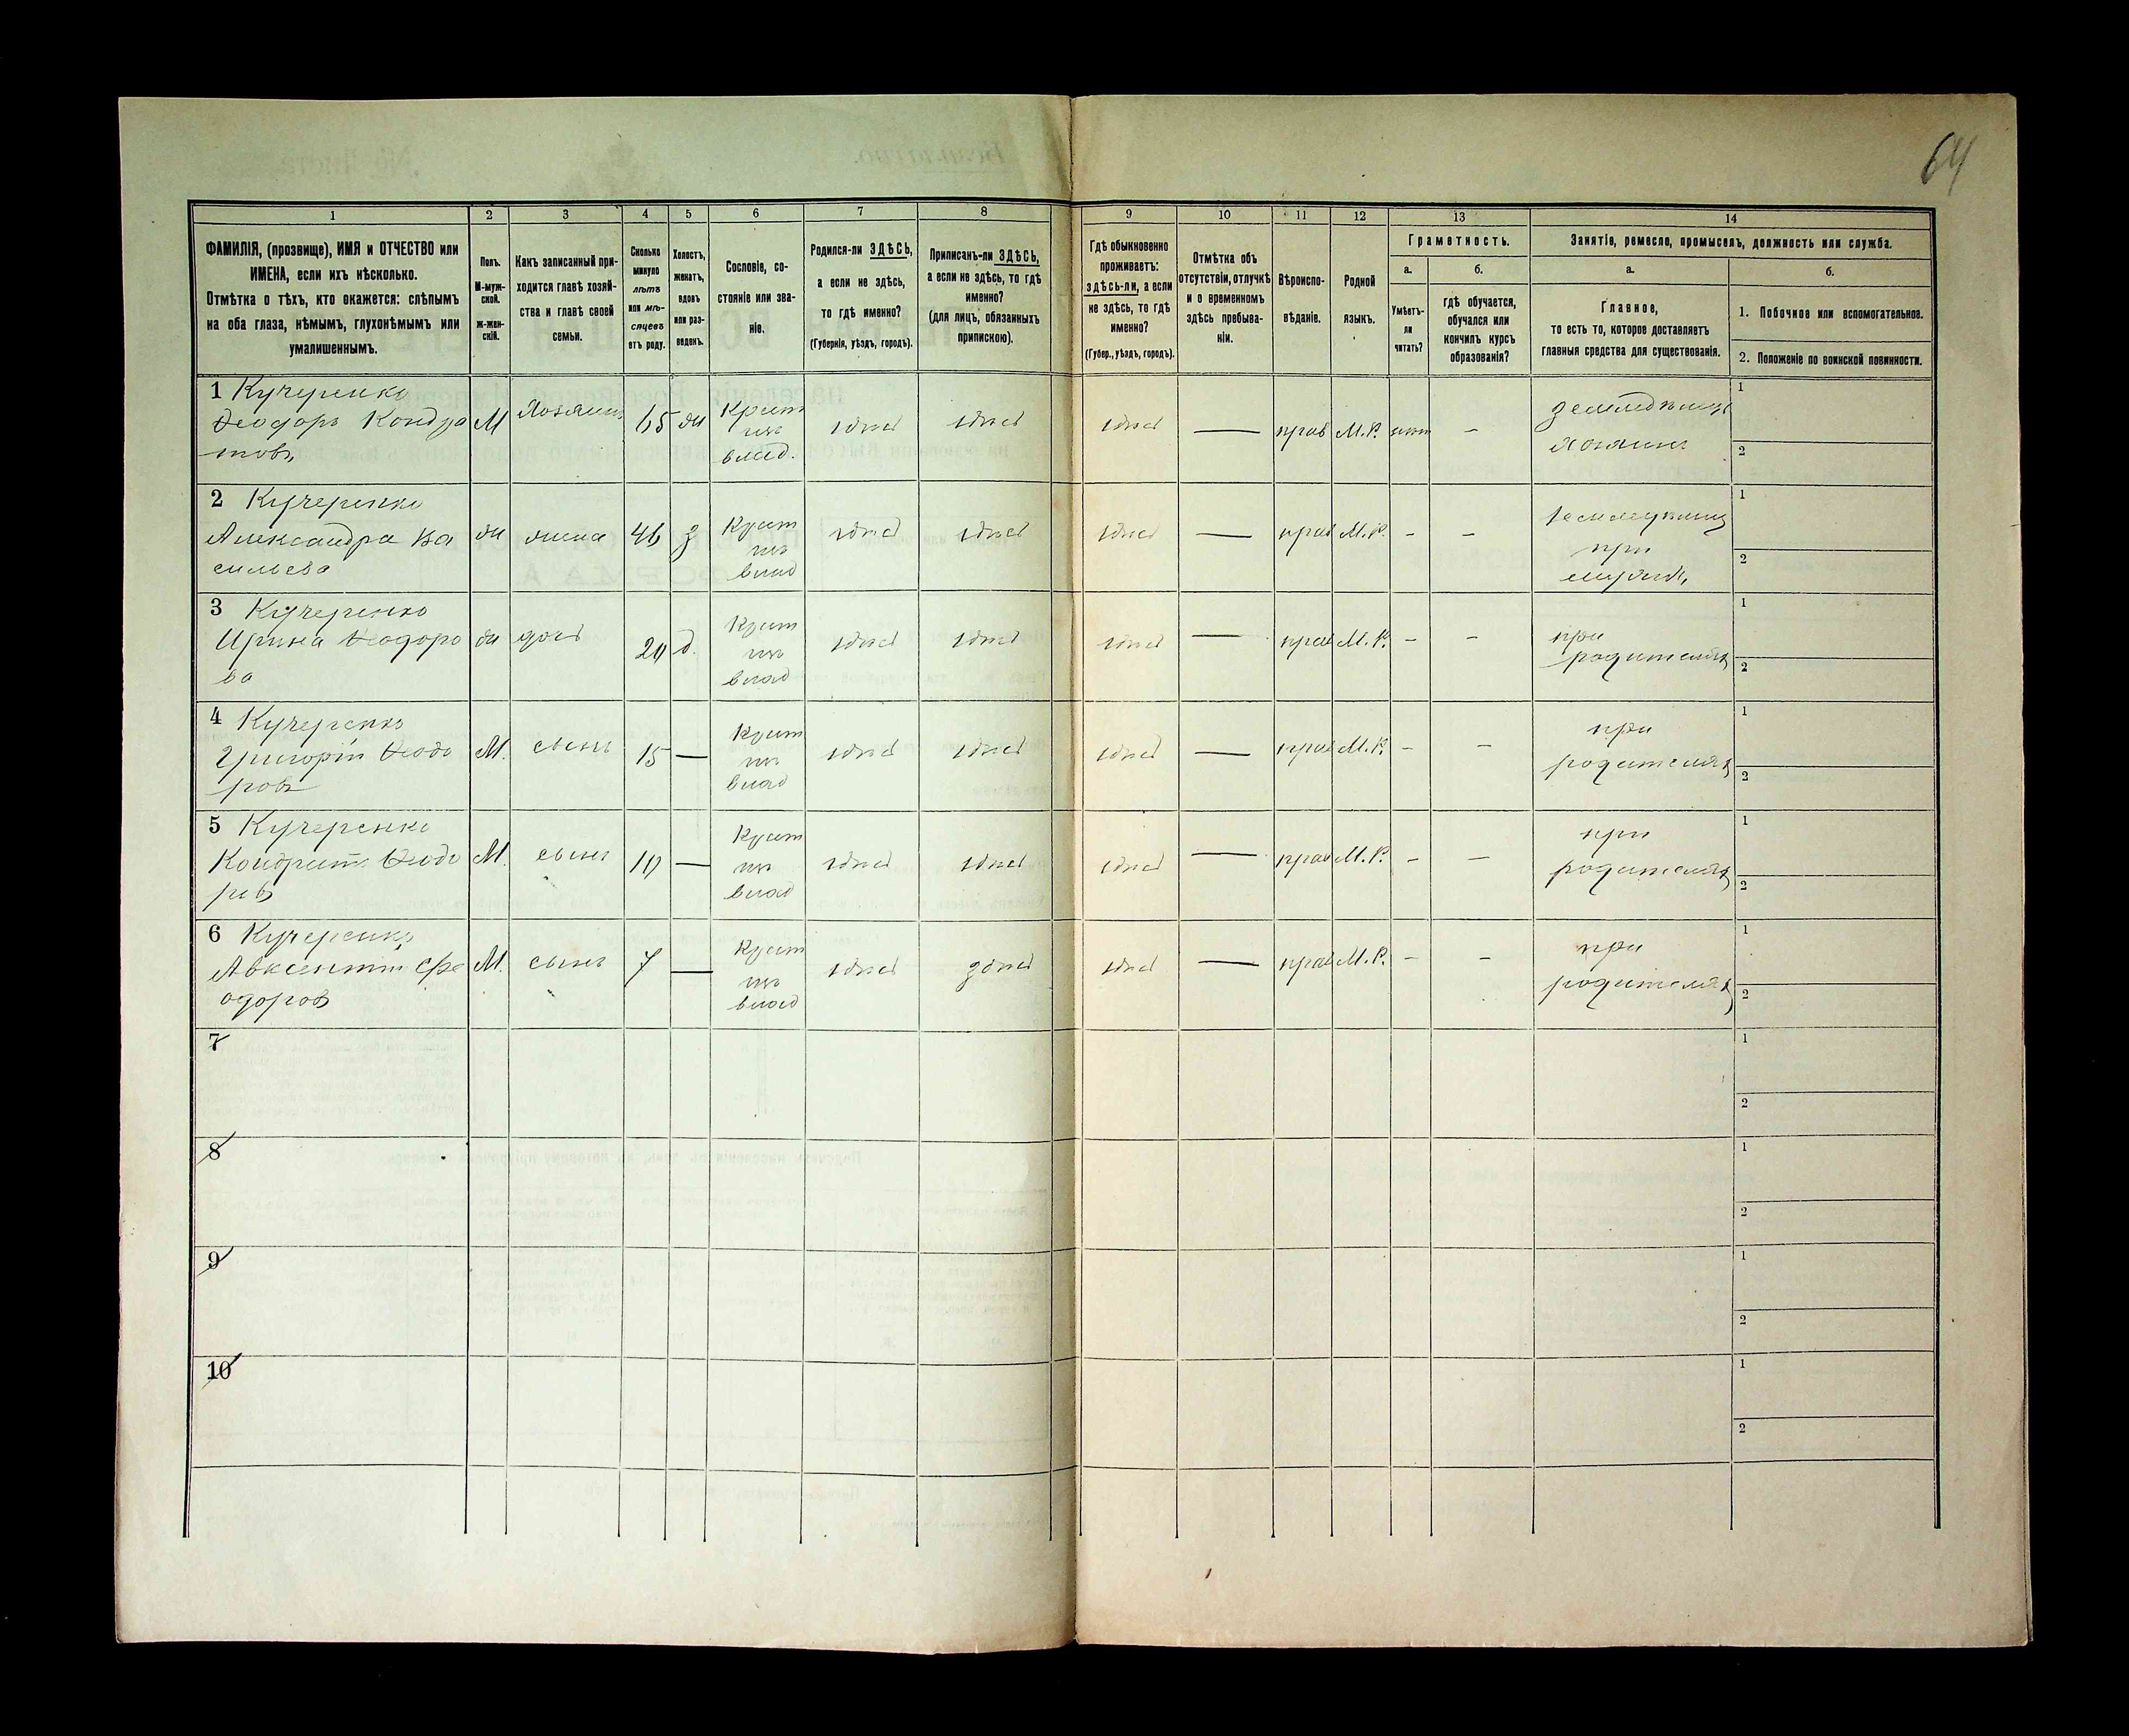 64
1 2 3 4 5 6 7 8 9 10 11 12 13 14
ФАМИЛІЯ, (прозвище), ИМЯ и ОТЧЕСТВО или
ИМЕНА, если ихъ нѣсколько.
Отмѣтка о тѣхъ, кто окажется: слѣпымъ
на оба глаза, нѣмымъ, глухонѣмымъ или
умалишеннымъ.
Полъ.
М-муж-
ской.
Ж-жен-
скій.
Какъ записанный при-
ходится главѣ хозяй-
ства и главѣ своей
семьи.
Сколько
минуло
лѣтъ
или мѣ-
сяцевъ
отъ роду.
Холостъ,
женатъ,
вдовъ
или раз-
веденъ.
Сословіе, со-
стояніе или зва-
ніе.
Родился-ли ЗДѢСЬ,
а если не здѣсь,
то гдѣ именно?
(Губернія, уѣздъ, городъ).
Приписанъ-ли ЗДѢСЬ,
а если не здѣсь, то гдѣ
именно?
(для лицъ, обязанныхъ
припискою).
Гдѣ обыкновенно
проживаетъ:
здѣсь-ли, а если
не здѣсь, то гдѣ
именно?
(Губер., уѣздъ, городъ).
Отмѣтка объ
отсутствіи, отлучкѣ
и о временномъ
здѣсь пребыва-
ніи.
Вѣроиспо-
вѣданіе.
Родной
языкъ.
Грамотность.
а.
Умѣетъ-
ли
читать?
б.
гдѣ обучается,
обучался или
кончилъ курсъ
образованія?
Занятіе, ремесло, промыселъ, должность или служба.
а.
Главное,
то есть то, которое доставляетъ
главныя средства для существованія.
б.
1. Побочное или вспомогательное.
2. Положеніе по воинской повинности.
1 Кучеренко
Ѳеодоръ Кондра
товъ
М
Хозяинъ
65
жи
Крест
изъ
влад.
здѣсь
здѣсь
здѣсь
—
прав
М.Р.
нѣт
–
земледѣлецъ
хозяинъ
1
2
2 Кучеренко
Александра Ва
сильева
жи
жена
46
з
Крест
изъ
влад
здѣсь
здѣсь
здѣсь
—
прав
М.Р.
–
–
при
1
2
3 Кучеренко
Ирина Ѳеодоро
ва
жи
дочь
20
д.
Крест
изъ
влад
здѣсь
здѣсь
здѣсь
—
прав
М.Р.
–
–
при
родителях
1
2
4 Кучеренко
Григорій Ѳеодо
ровъ
М.
сынъ
15
—
Крест
изъ
влад
здѣсь
здѣсь
здѣсь
—
прав
М.Р.
–
–
при
родителях
1
2
5 Кучеренко
Кондратъ Ѳеодо
ровъ
М.
сынъ
10
—
Крест
изъ
влад
здѣсь
здѣсь
здѣсь
—
прав
М.Р.
–
–
при
родителях
1
2
6 Кучеренко
Авксентій Фе
одоровъ
М.
сынъ
7
—
Крест
изъ
влад
здѣсь
здѣсь
здѣсь
—
прав
М.Р.
–
–
при
родителях
1
2
7
1
2
8
1
2
9
1
2
10
1
2